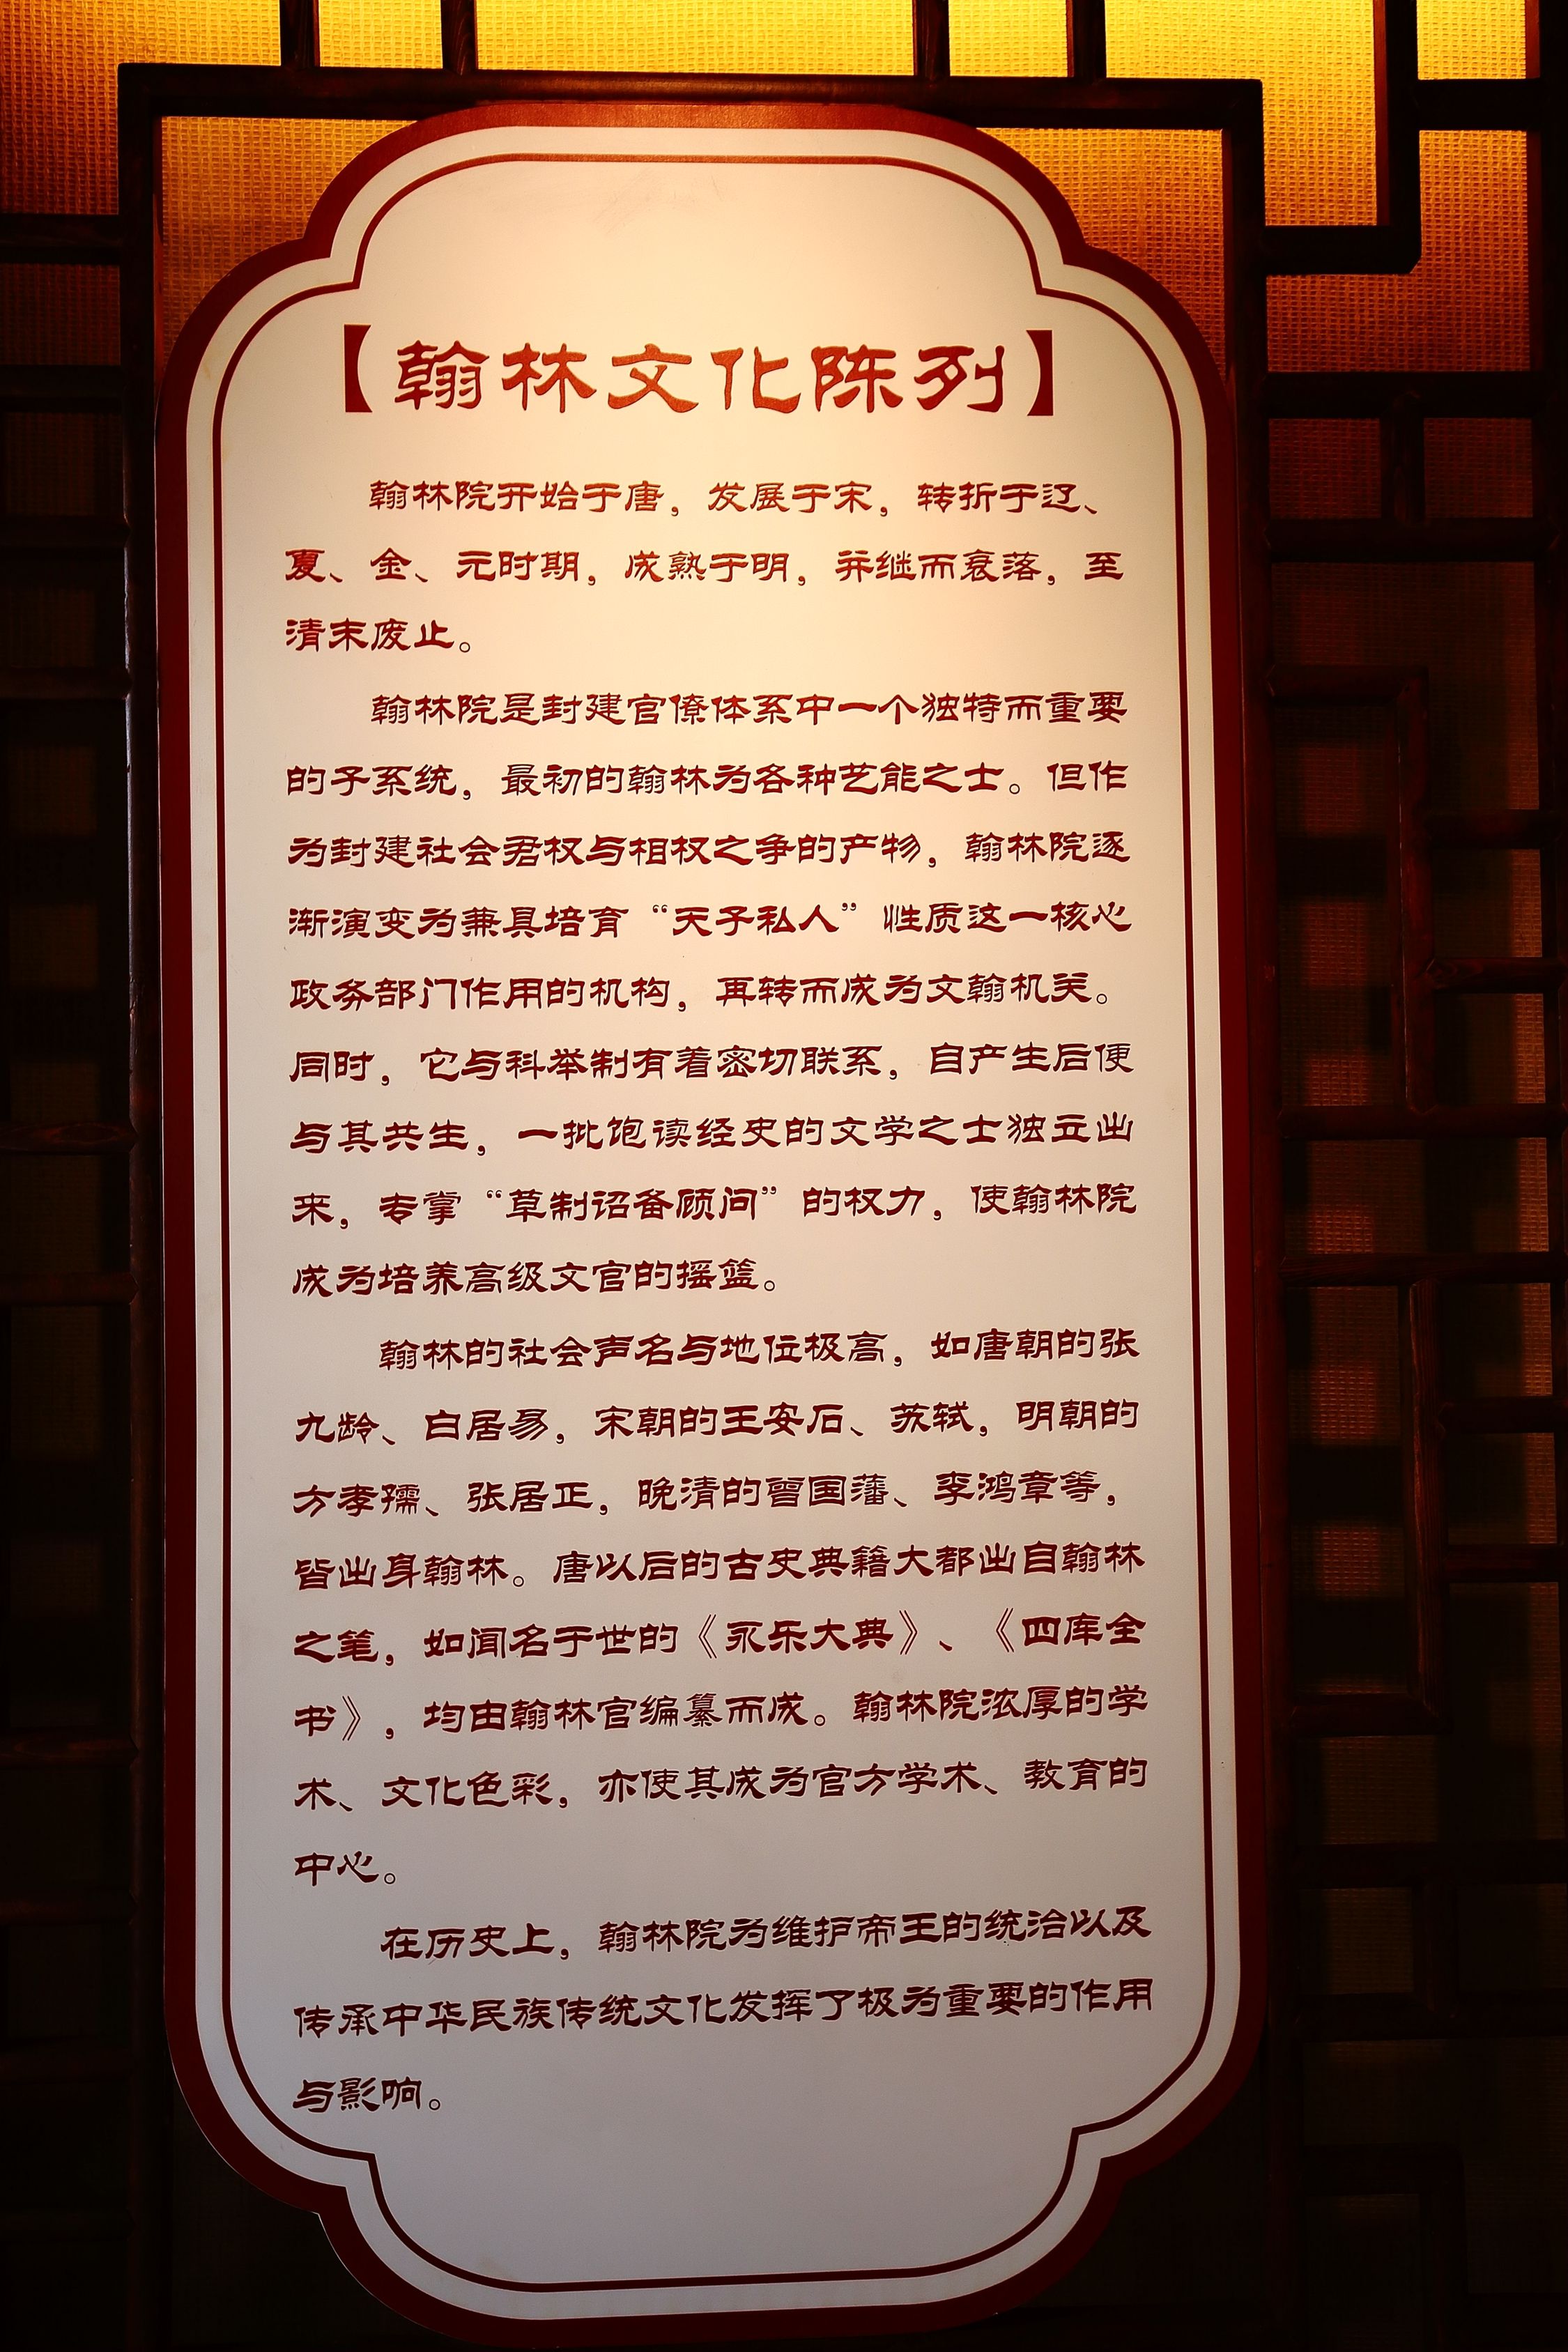 【翰林文化陈列】
翰林院开始于唐，发展于宋，转折于辽、
夏、金、元时期，成熟于明，并继而衰落，至
清末废止。
翰林院是封建官僚体系中一个独特而重要
的子系统，最初的翰林为各种艺能之士。但作
为封建社会君权与相权之争的产物，翰林院逐
渐演变为兼具培育“天子私人”性质这一核心
政务部门作用的机构，再转而成为文翰机关。
同时，它与科举制有着密切联系，自产生后便
与其共生，一批饱读经史的文学之士独立出
来，专掌“草制诏备顾问”的权力，使翰林院
成为培养高级文官的摇篮。
翰林的社会声名与地位极高，如唐朝的张
九龄、白居易，宋朝的王安石、苏轼，明朝的
方孝孺、张居正，晚清的曾国藩、李鸿章等，
皆出身翰林。唐以后的古史典籍大都出自翰林
之笔，如闻名于世的《永乐大典》、《四库全
书》，均由翰林官编纂而成。翰林院浓厚的学
术、文化色彩，亦使其成为官方学术、教育的
中心。
在历史上，翰林院为维护帝王的统治以及
传承中华民族传统文化发挥了极为重要的作用
与影响。